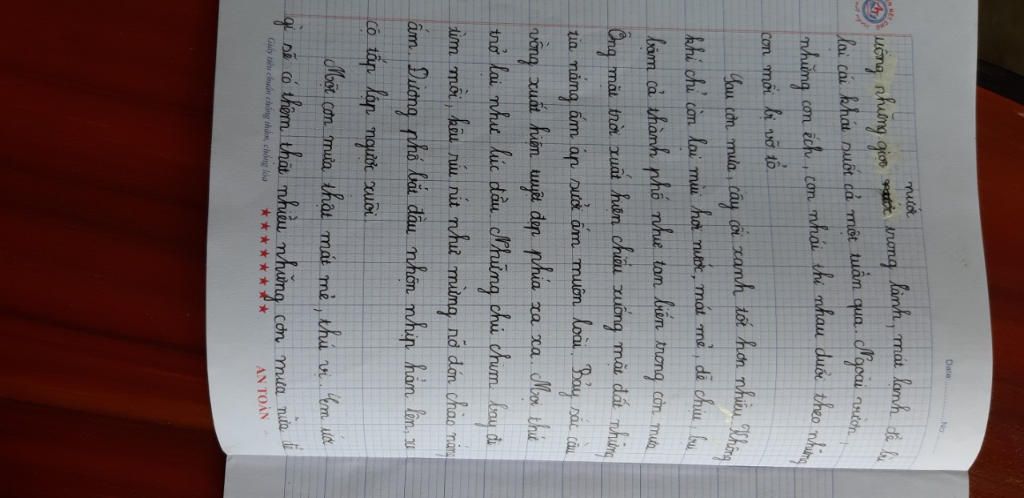 Date: No.
nươi
uống những giọt trong lành, mát lạnh để bù
lại cái khát suốt cả một tuần qua. Ngoài vườn,
những con ếch, con nhái thi nhau đuổi theo những
con mối bị vỡ tổ.
Sau cơn mưa, cây cối xanh tốt hơn nhiều. Không
khí chỉ còn lại mùi hơi nước, mát mẻ, dễ chịu, bụi
bặm cả thành phố như tan biến trong cơn mưa
Ông mặt trời xuất hiện chiếu xuống mặt đất những
tia nắng ấm áp sưởi ấm muôn loài. Bảy sắc cầu
vồng xuất hiện tuyệt đẹp phía xa xa. Mọi thứ
trở lại như lúc đầu. Những chú chim bay đi
tìm mồi, kêu ríu rít như mừng rỡ đón chào nắng
ấm. Dường phố bắt đầu nhộn nhịp hẳn lên, xe
cộ tấp lập người xuôi.
Một cơn mưa thật mát mẻ, thú vị. Em ước
gì sẽ có thêm thật nhiều những cơn mưa nữa để
Giấy tiêu chuẩn chống thấm, chống lóa
AN TOÀN